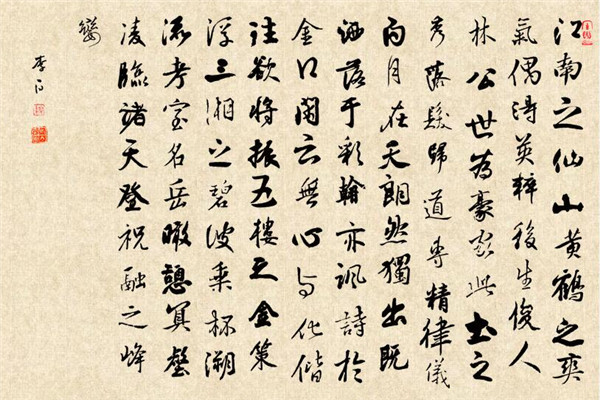 江南之仙山黄鶴之爽
氣偶淂英粹後生俊人
林公世為豪家此土之
秀落髮歸道專精律儀
白月在天朗然獨出既
洒落于彩翰亦諷詩於
金口閑云無心与化偕
往欲将振五樓之金策
浮三湘之碧波乘杯溯
流考室名岳瞰憩冥壑
凌臨諸天登祝融之峰
巒
李